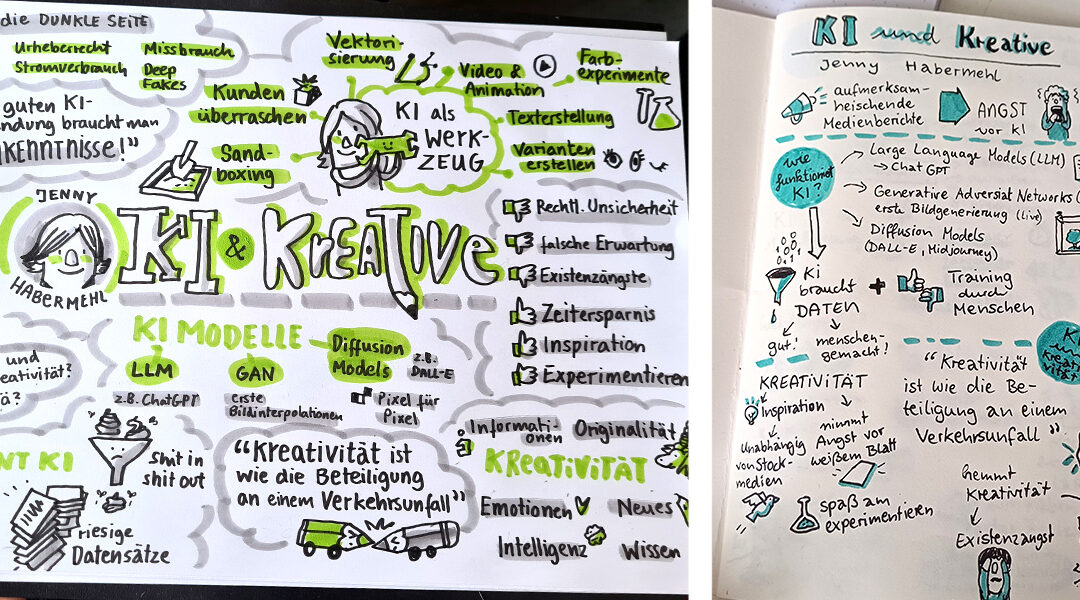 die DUNKLE SEITE
Urheberrecht
Missbrauch
Stromverbrauch
Deep
Fakes
guten KI-
ndung braucht man
KENNTNISSE!"
Kunden
überraschen
Sand-
boxing
Vektori-
sierung
Video &
Animation
Farb-
experimente
KI als
WERK-
ZEUG
Texterstellung
Varianten
erstellen
JENNY
HABERMEHL
KI & KREATIVE
Rechtl. Unsicherheit
falsche Erwartung
Existenzängste
Zeitersparnis
Inspiration
Experimentieren
KI MODELLE
LLM
z.B. ChatGPT
GAN
erste
Bildinterpolationen
Diffusion
Models
z.B.
DALL-E
Pixel für
Pixel
und
eativität?
ä?
NT KI
Shit in
shit out
riesige
Datensätze
"Kreativität ist
wie die Beteiligung
an einem Verkehrsunfall"
Informati-
onen
Originalität
KREATIVITÄT
Emotionen
Neues
Intelligenz
Wissen
KI und Kreative
Jenny Habermehl
aufmerksam-
heischende
Medienberichte
ANGST
vor KI
wie
funktioniert
KI?
Large Language Models (LLM)
→ Chat GPT
Generative Adversiat Networks (
erste Bildgenerierung (Live)
Diffusion Models
(DALL-E, Midjourney)
Ki
braucht
DATEN
+
Training
durch
Menschen
gut!
menschen-
gemacht!
KREATIVITÄT
Inspiration
Unabhängig
von Stock-
medien
nimmt
Angst vor
weißem Blatt
spaß am
experimentieren
"Kreativität
ist wie die Be-
teiligung an einem
Verkehrsunfall"
hemmt
Kreativität
Existenzangst